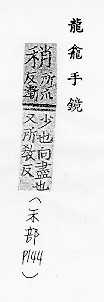 龍龕手鏡
稍
所爪
反漸
少也向盡也
又所敎反
(禾部 P144)